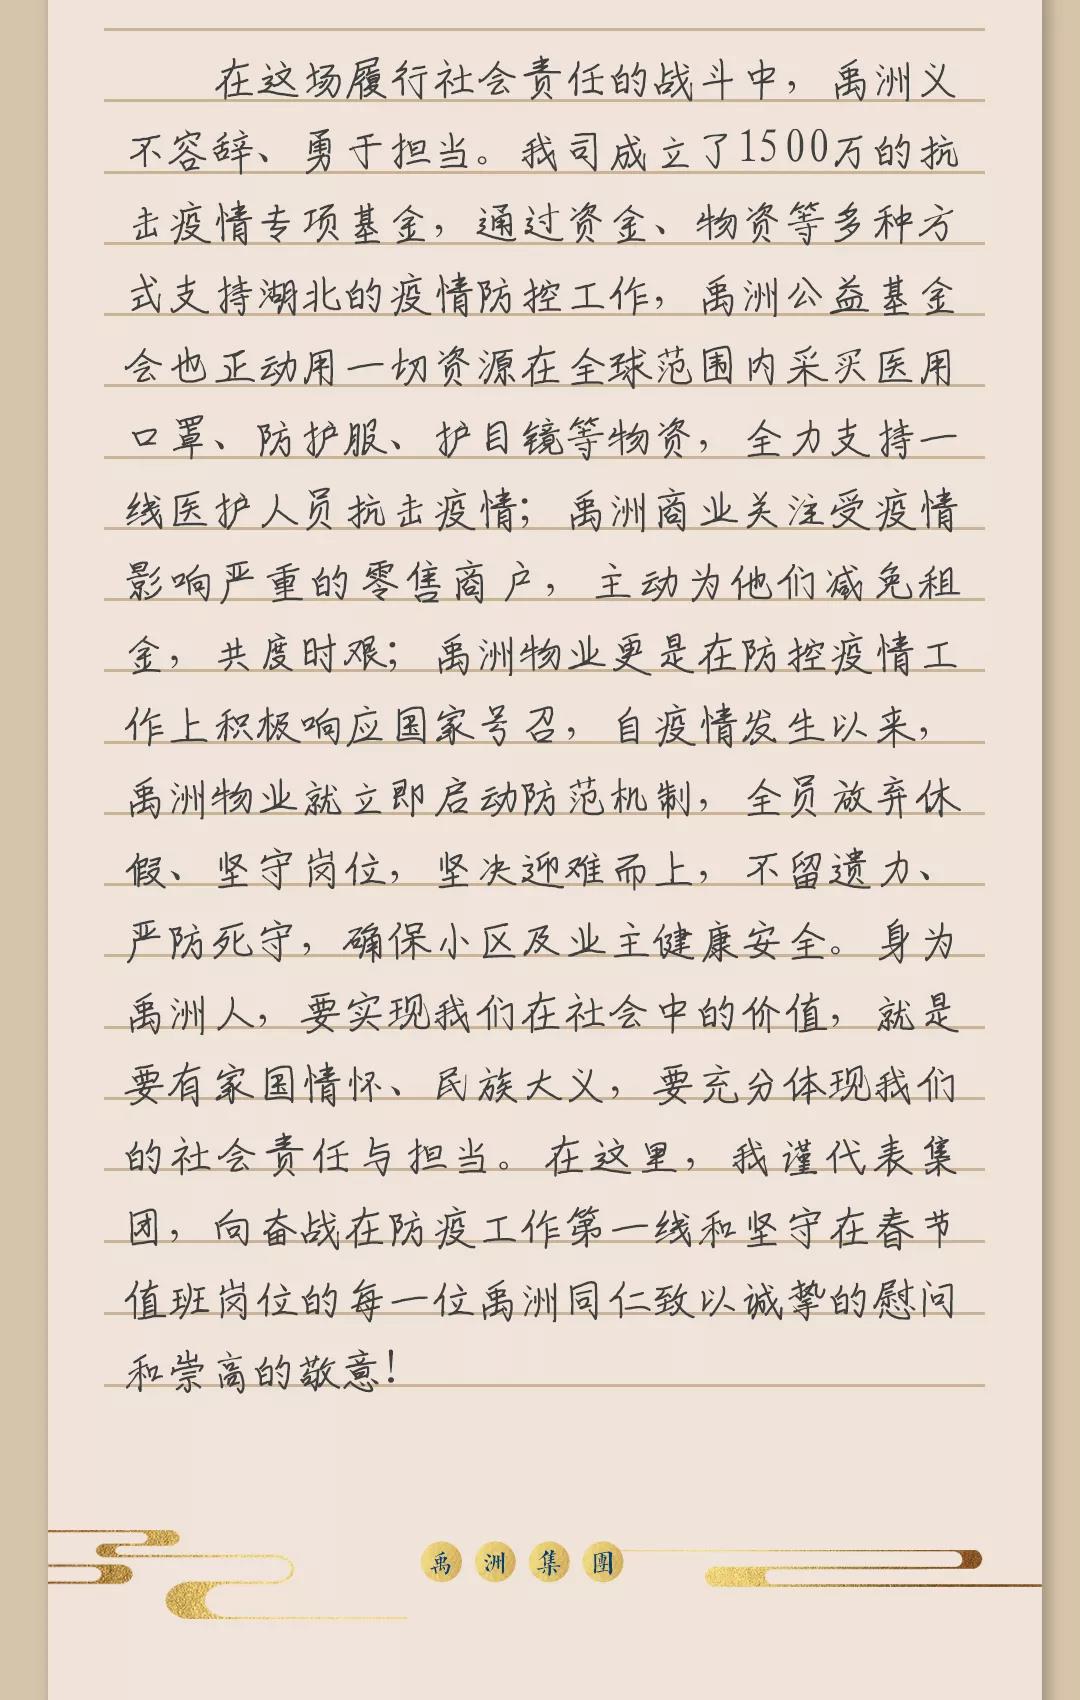 在这场履行社会责任的战斗中，禹洲义
不容辞、勇于担当。我司成立了1500万的抗
击疫情专项基金，通过资金、物资等多种方
式支持湖北的疫情防控工作，禹洲公益基金
会也正动用一切资源在全球范围内采买医用
口罩、防护服、护目镜等物资，全力支持一
线医护人员抗击疫情；禹洲商业关注受疫情
影响严重的零售商户，主动为他们减免租
金，共度时艰；禹洲物业更是在防控疫情工
作上积极响应国家号召，自疫情发生以来，
禹洲物业就立即启动防范机制，全员放弃休
假、坚守岗位，坚决迎难而上，不留遗力、
严防死守，确保小区及业主健康安全。身为
禹洲人，要实现我们在社会中的价值，就是
要有家国情怀、民族大义，要充分体现我们
的社会责任与担当。在这里，我谨代表集
团，向奋战在防疫工作第一线和坚守在春节
值班岗位的每一位禹洲同仁致以诚挚的慰问
和崇高的敬意！
禹洲集團